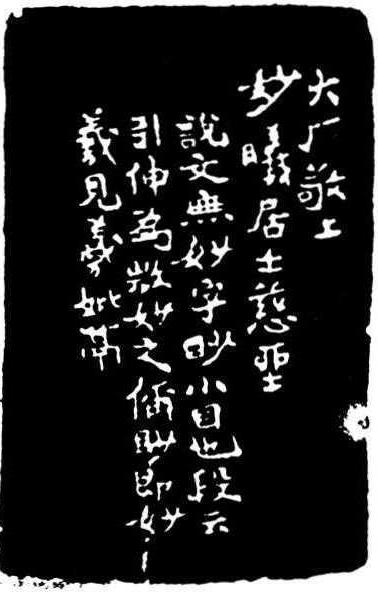 大厂敬上
妙曦居士慈聖
說文無妙字眇小目也段云
引伸為𢼸妙之偁眇即妙
羲見羲妣鬲